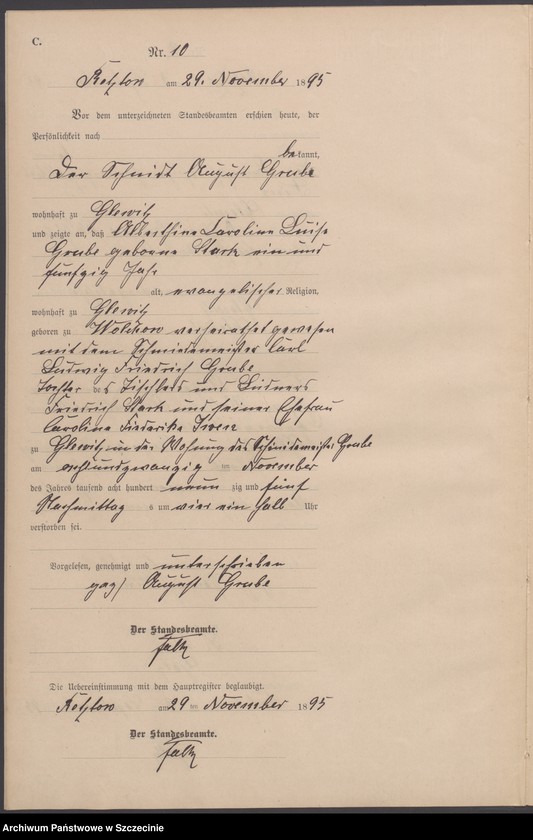 C.
Nr. 10
am 29. November 1895
Vor dem unterzeichneten Standesbeamten erschien heute, der
Persönlichkeit nach
bekannt,
der Schmidt August Grube
wohnhaft zu Glewitz
und zeigte an, daß Albertine Caroline Luise
Grube geborne Stark ein und
fünfzig Jahr
alt, evangelischer Religion,
wohnhaft zu Glewitz
geboren zu Wolchow verheirathet gewesen
mit dem Schmiedemeister Carl
Ludwig Friedrich Grube
Tochter des Tischlers und Büdners
Friedrich Stark und seiner Ehefrau
Caroline Friederike
zu Glewitz in der Wohnung des Schmiedemeister Grube
am achtundzwanzig ten November
des Jahres tausend acht hundert neun zig und fünf
Nachmittag s um vier ein halb Uhr
verstorben sei.
Vorgelesen, genehmigt und unterschrieben
gez/ August Grube
Der Standesbeamte.
Falk
Die Uebereinstimmung mit dem Hauptregister beglaubigt.
am 29 ten November 1895
Der Standesbeamte.
Falk
Archiwum Państwowe w Szczecinie